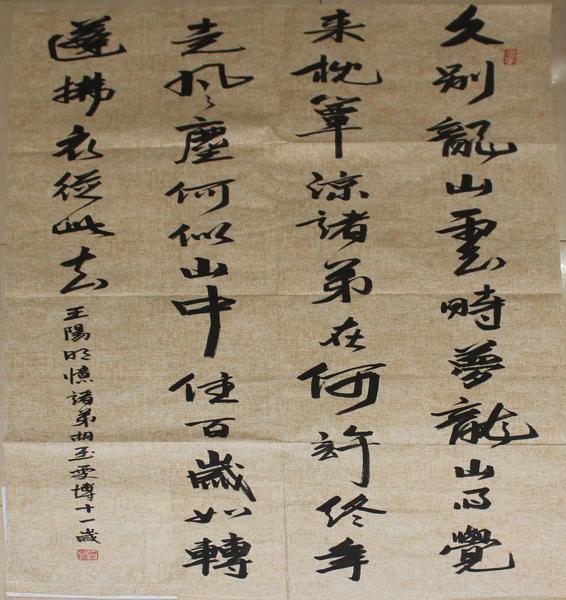 久别龍山雲時夢龍山雨覺
来枕簟涼諸弟在何許終年
走風塵何似山中住百歲如轉
蓬拂衣從此去
王陽明憶諸弟胡玉雯博十一歲